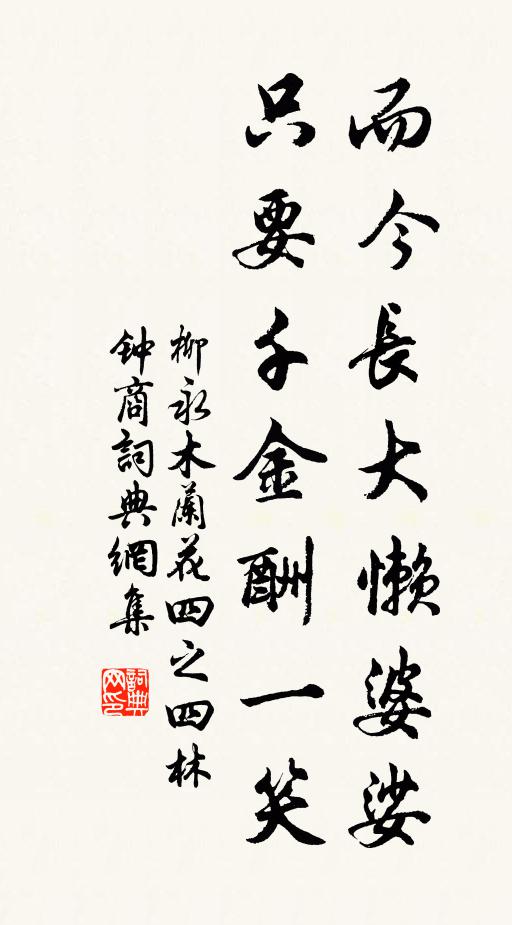 而今長大懶婆娑
只要千金酬一笑
柳永木蘭花四之四林
鈡商詞典網集
詞典
网印